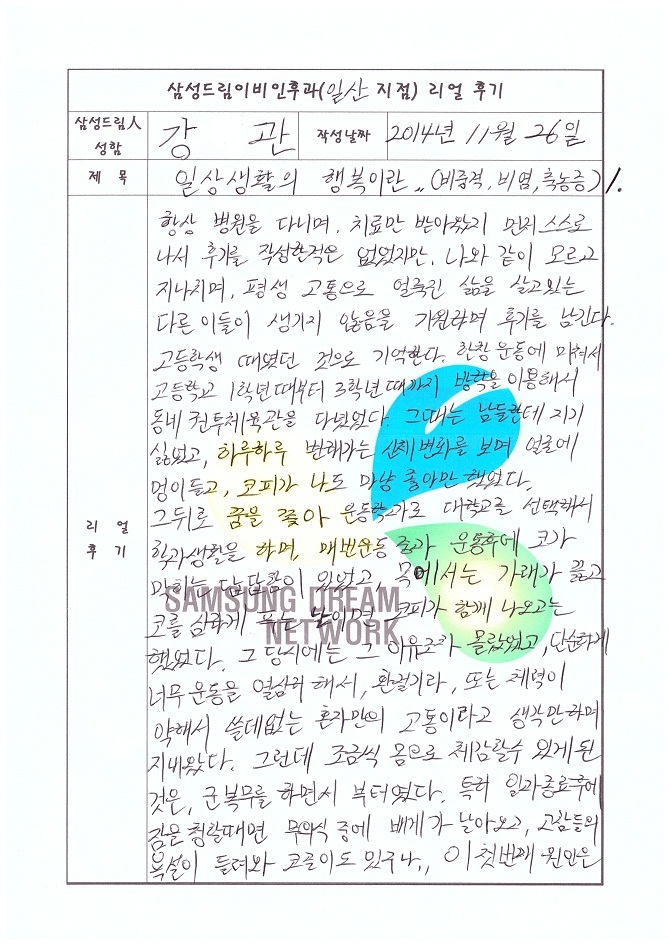 삼성드림이비인후과(일산 지점) 리얼 후기
삼성드림人 성함 강 관 작성날짜 2014년 11월 26일
제 목 일상생활의 행복이란.. (비중격, 비염, 축농증) /.
리 얼 후 기
항상 병원을 다니며, 치료만 받아왔지 먼저 스스로
나서 후기를 작성한적은 없었지만, 나와 같이 모르고
지나치며, 평생 고통으로 얼룩진 삶을 살고있는
다른이들이 생기지 않음을 기원하며 후기를 남긴다.
고등학생 때였던 것으로 기억한다. 한창 운동에 미쳐서
고등학교 1학년때부터 3학년때까지 방학을 이용해서
동네 권투체육관을 다녔었다. 그때는 남들한테 지기
싫었고, 하루하루 변해가는 신체변화를 보며 얼굴에
멍이들고, 코피가 나도 마냥 좋아만 했었다.
그뒤로 꿈을 쫓아 운동학과로 대학교를 선택해서
학과생활을 하며, 매번운동 운동후에 코가
막히는 답답함이 있었고, 목에서는 가래가 끓고
코를 심하게 푸는 날이면 코피가 함께 나오고는
했었다. 그 당시에는 그 이유조차 몰랐었고, 단순하게
너무 운동을 열심히 해서, 환절기라, 또는 체력이
약해서 쓸데없는 혼자만의 고통이라고 생각만하며
지내왔다. 그런데 조금씩 몸으로 체감할수 있게 된
것은, 군복무를 하면서 부터였다. 특히 일과종료후에
잠을 청할때면 무의식 중에 베게가 날아오고, 고참들의
욕설이 들려와 코골이도 있구나,, 이 첫번째 원인은
SAMSUNG DREAM
NETWORK